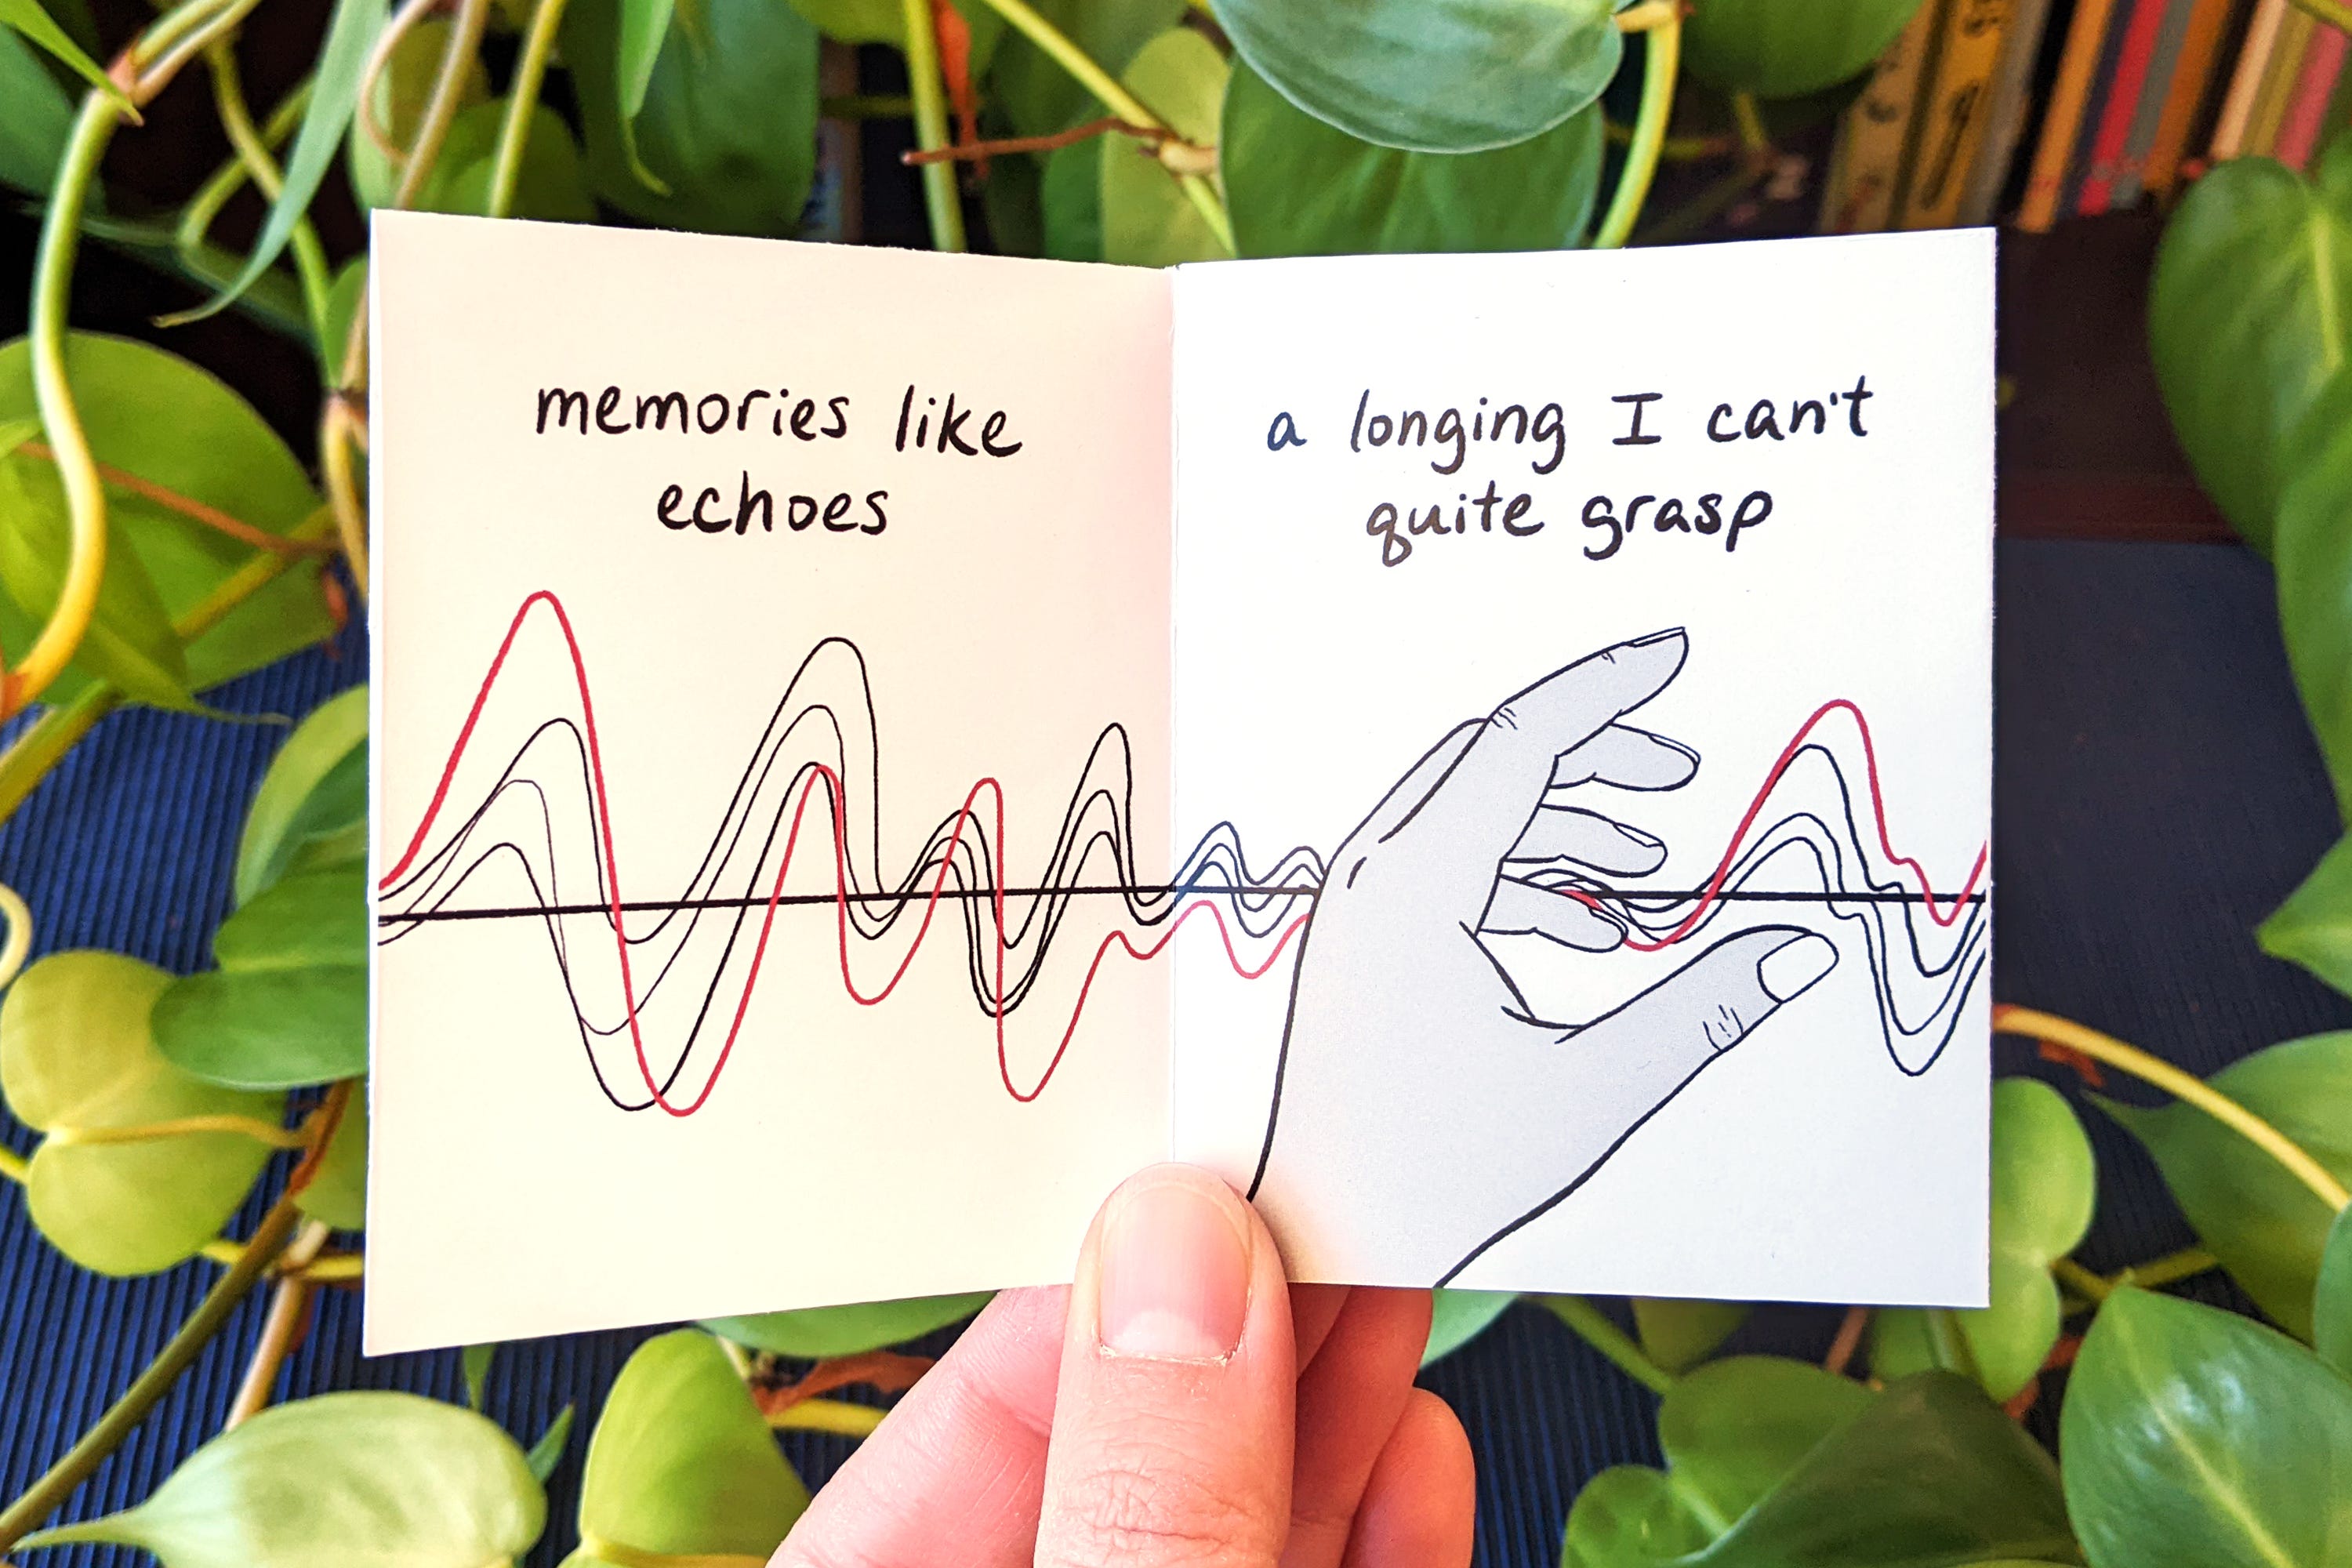 memories like
echoes
a longing I can't
quite grasp